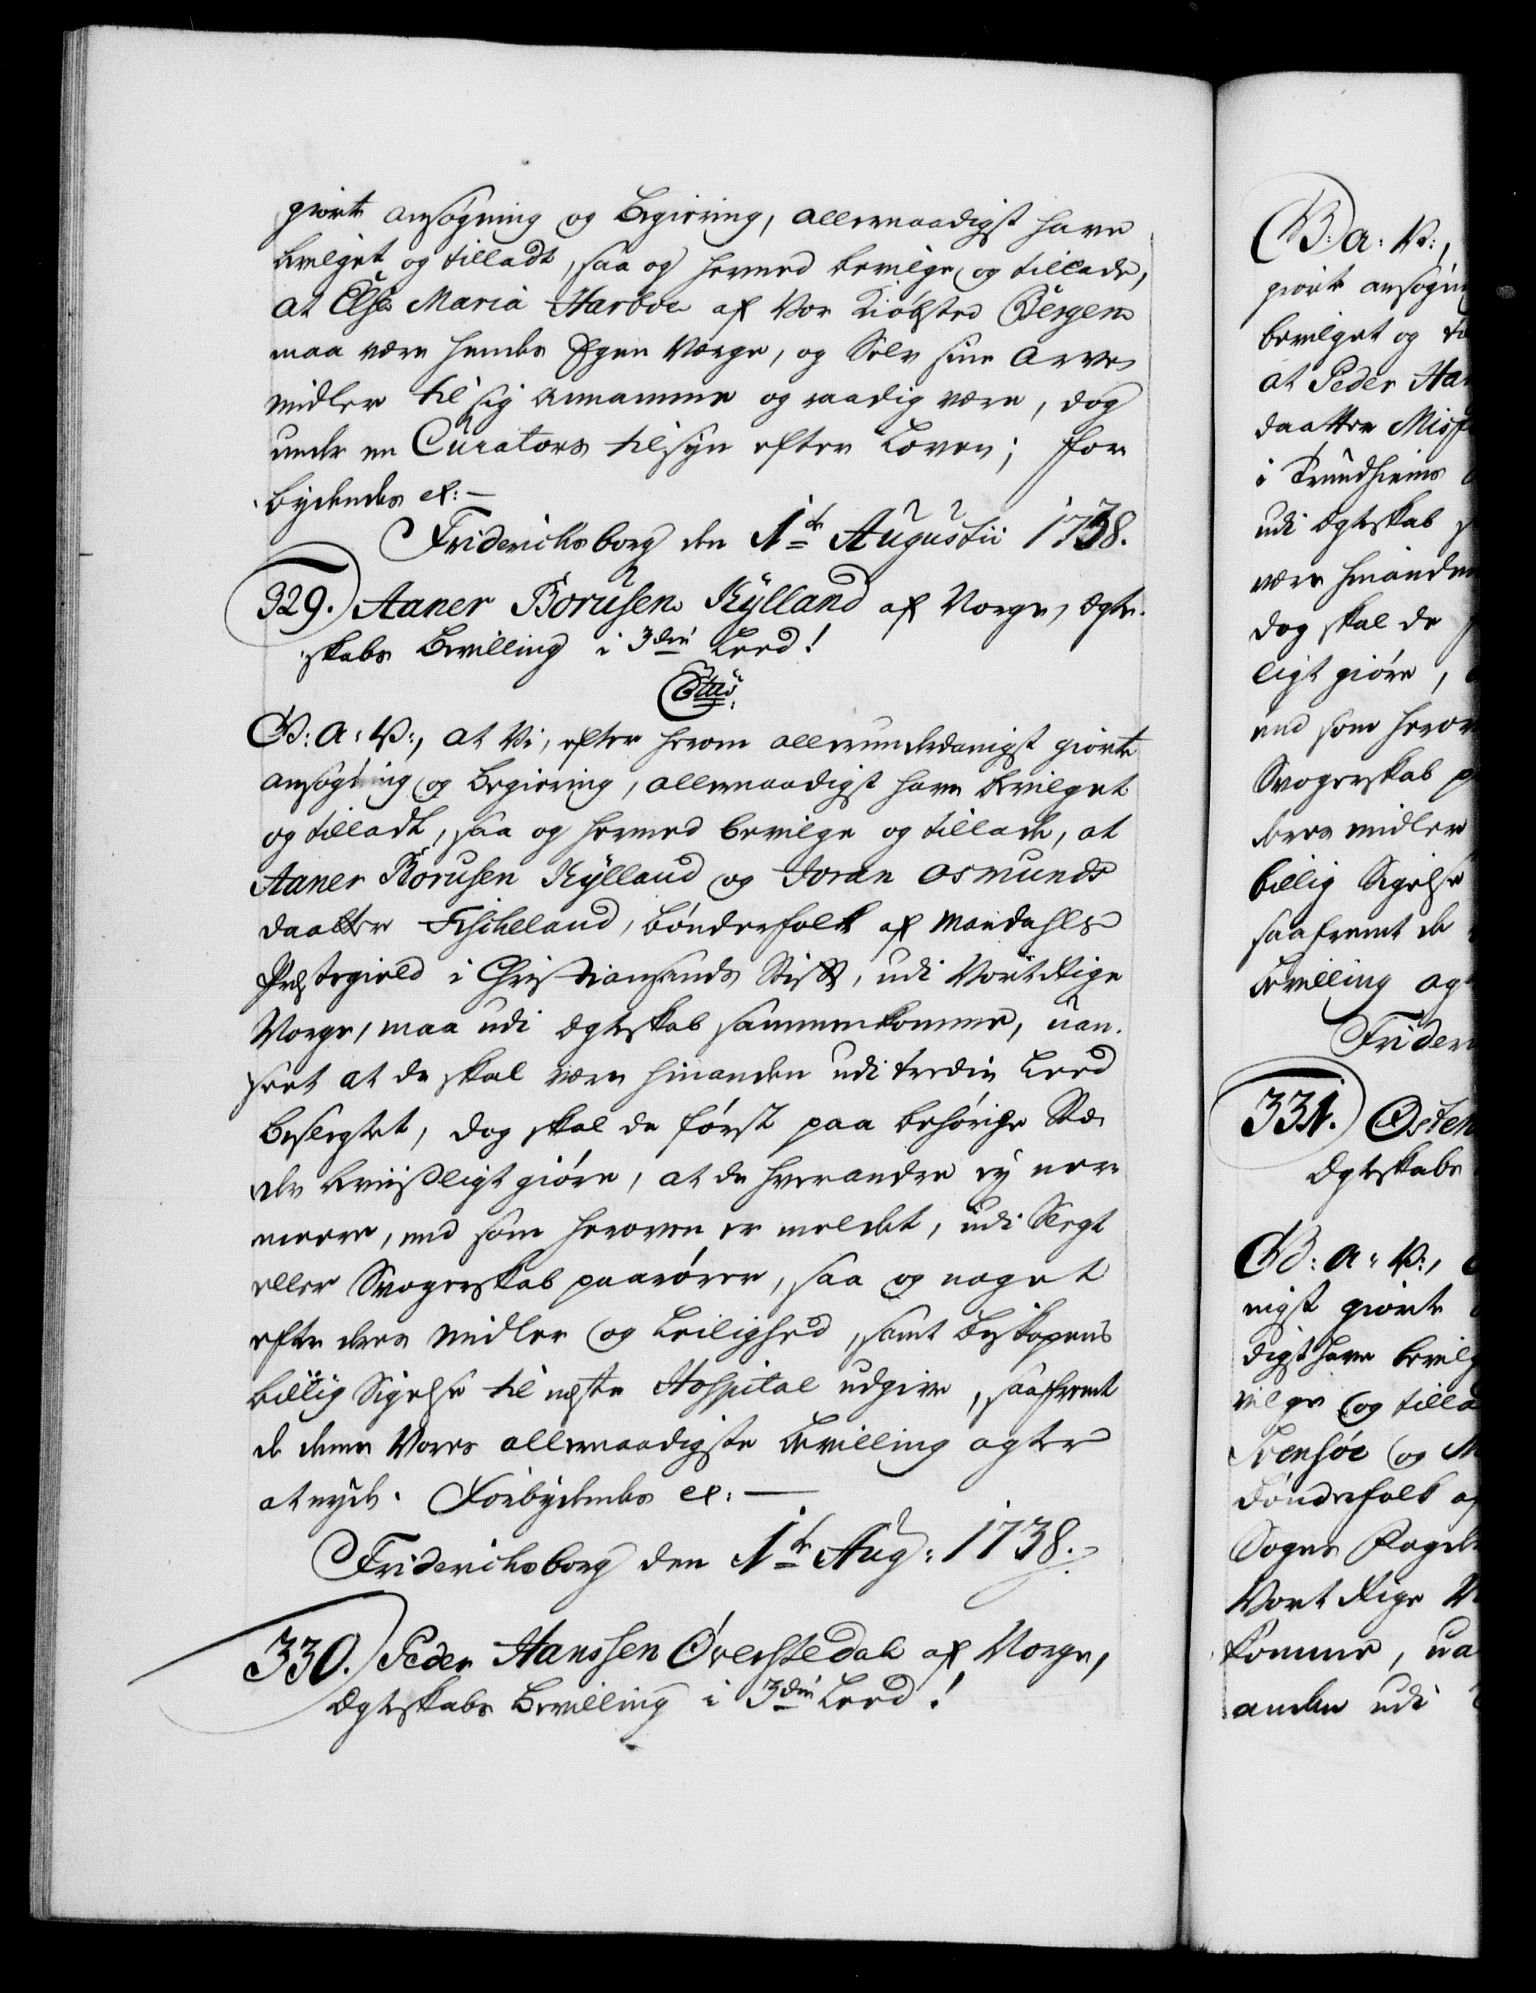 giorte ansøgning og begiering, allernaadigst have
bevilget og tilladt, saa og hermed bevilge og tillade,
at Else Maria Harboe af Vor Kiøbsted Bergen
maa være hendes Egen Værge, og Selv sine Arve
midler til sig annamme og raadig være, dog
under en Curators tilsyn efter Loven; For
bydendes etc:—
Friderichsborg den 1te Augustii 1738.
329. Aaner Borusen Kÿlland af Norge, Ægte-
skabs Bevilling i 3die Leed!
G: A: V:, at Vi, efter herom allerunderdanigst giorte
ansøgning og Begiering, allernaadigst have bevilget
og tilladt, saa og hermed bevilge og tillade, at
Aaner Borusen Kÿlland og Joran Osmunds
daatter Fischeland, bønderfolk af Mandahls
Præstegield i Christiansands Stift, udi Vort Rige
Norge, maa udi Ægteskab sammenkomme, uan-
seet at de skal være hinanden udi tredie Leed
beslegtet, dog skal de først paa behørige Stæ-
der beviisligt giøre, at de hverandre ey nær-
meere, end som heroven er meldet, udi Slegt
eller Svogerskab paarører, saa og noget
efter deres midler og Leilighed, samt Biskopens
billig Sigelse til næste Hospital udgive, saafremt
de denne Vores allernaadigste Bevilling agter
at nyde. Forbydendes etc:—
Friderichsborg den 1te Aug: 1738.
330. Peder Hanssen Øverstedal af Norge,
Ægteskabs Bevilling i 3die Leed!
G: A: V:,
giorte ansøgnin
bevilget og til
at Peder Han
daatter Misf
i Trundhiems
udi Ægteskab
være hinanden
dog skal de
ligt giøre,
end som herov
Svogerskab p
deres midler
billig Sigelse
saafremt de
Bevilling ag
Frider
331. Osten
Ægteskabs
G: A: V:,
nigst giorte
digst have bevilg
vilge og tilla
Svensøe og M
bønderfolk af
Sogns
Vort Rige N
komme, ua
anden udi